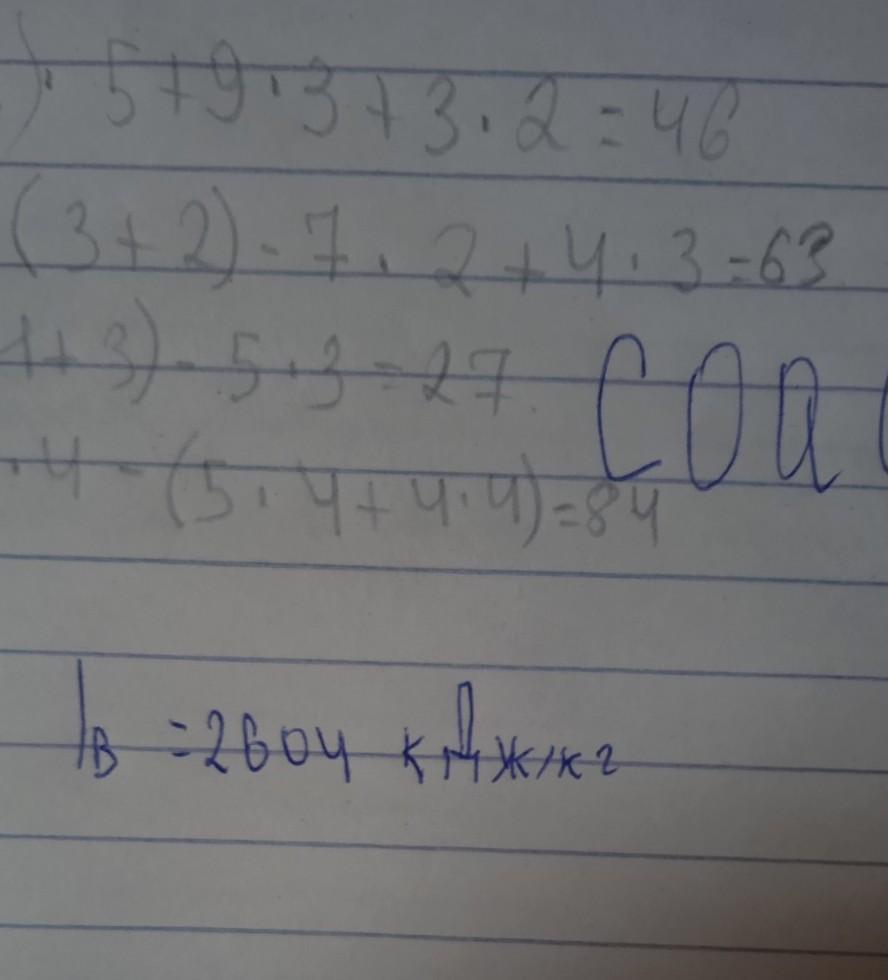 ). 5+9·3+3·2=46
(3+2)-7·2+4·3=63
1+3)-5·3=27
соа
·4-(5·4+4·4)=84
I в =2604 кДж/кг